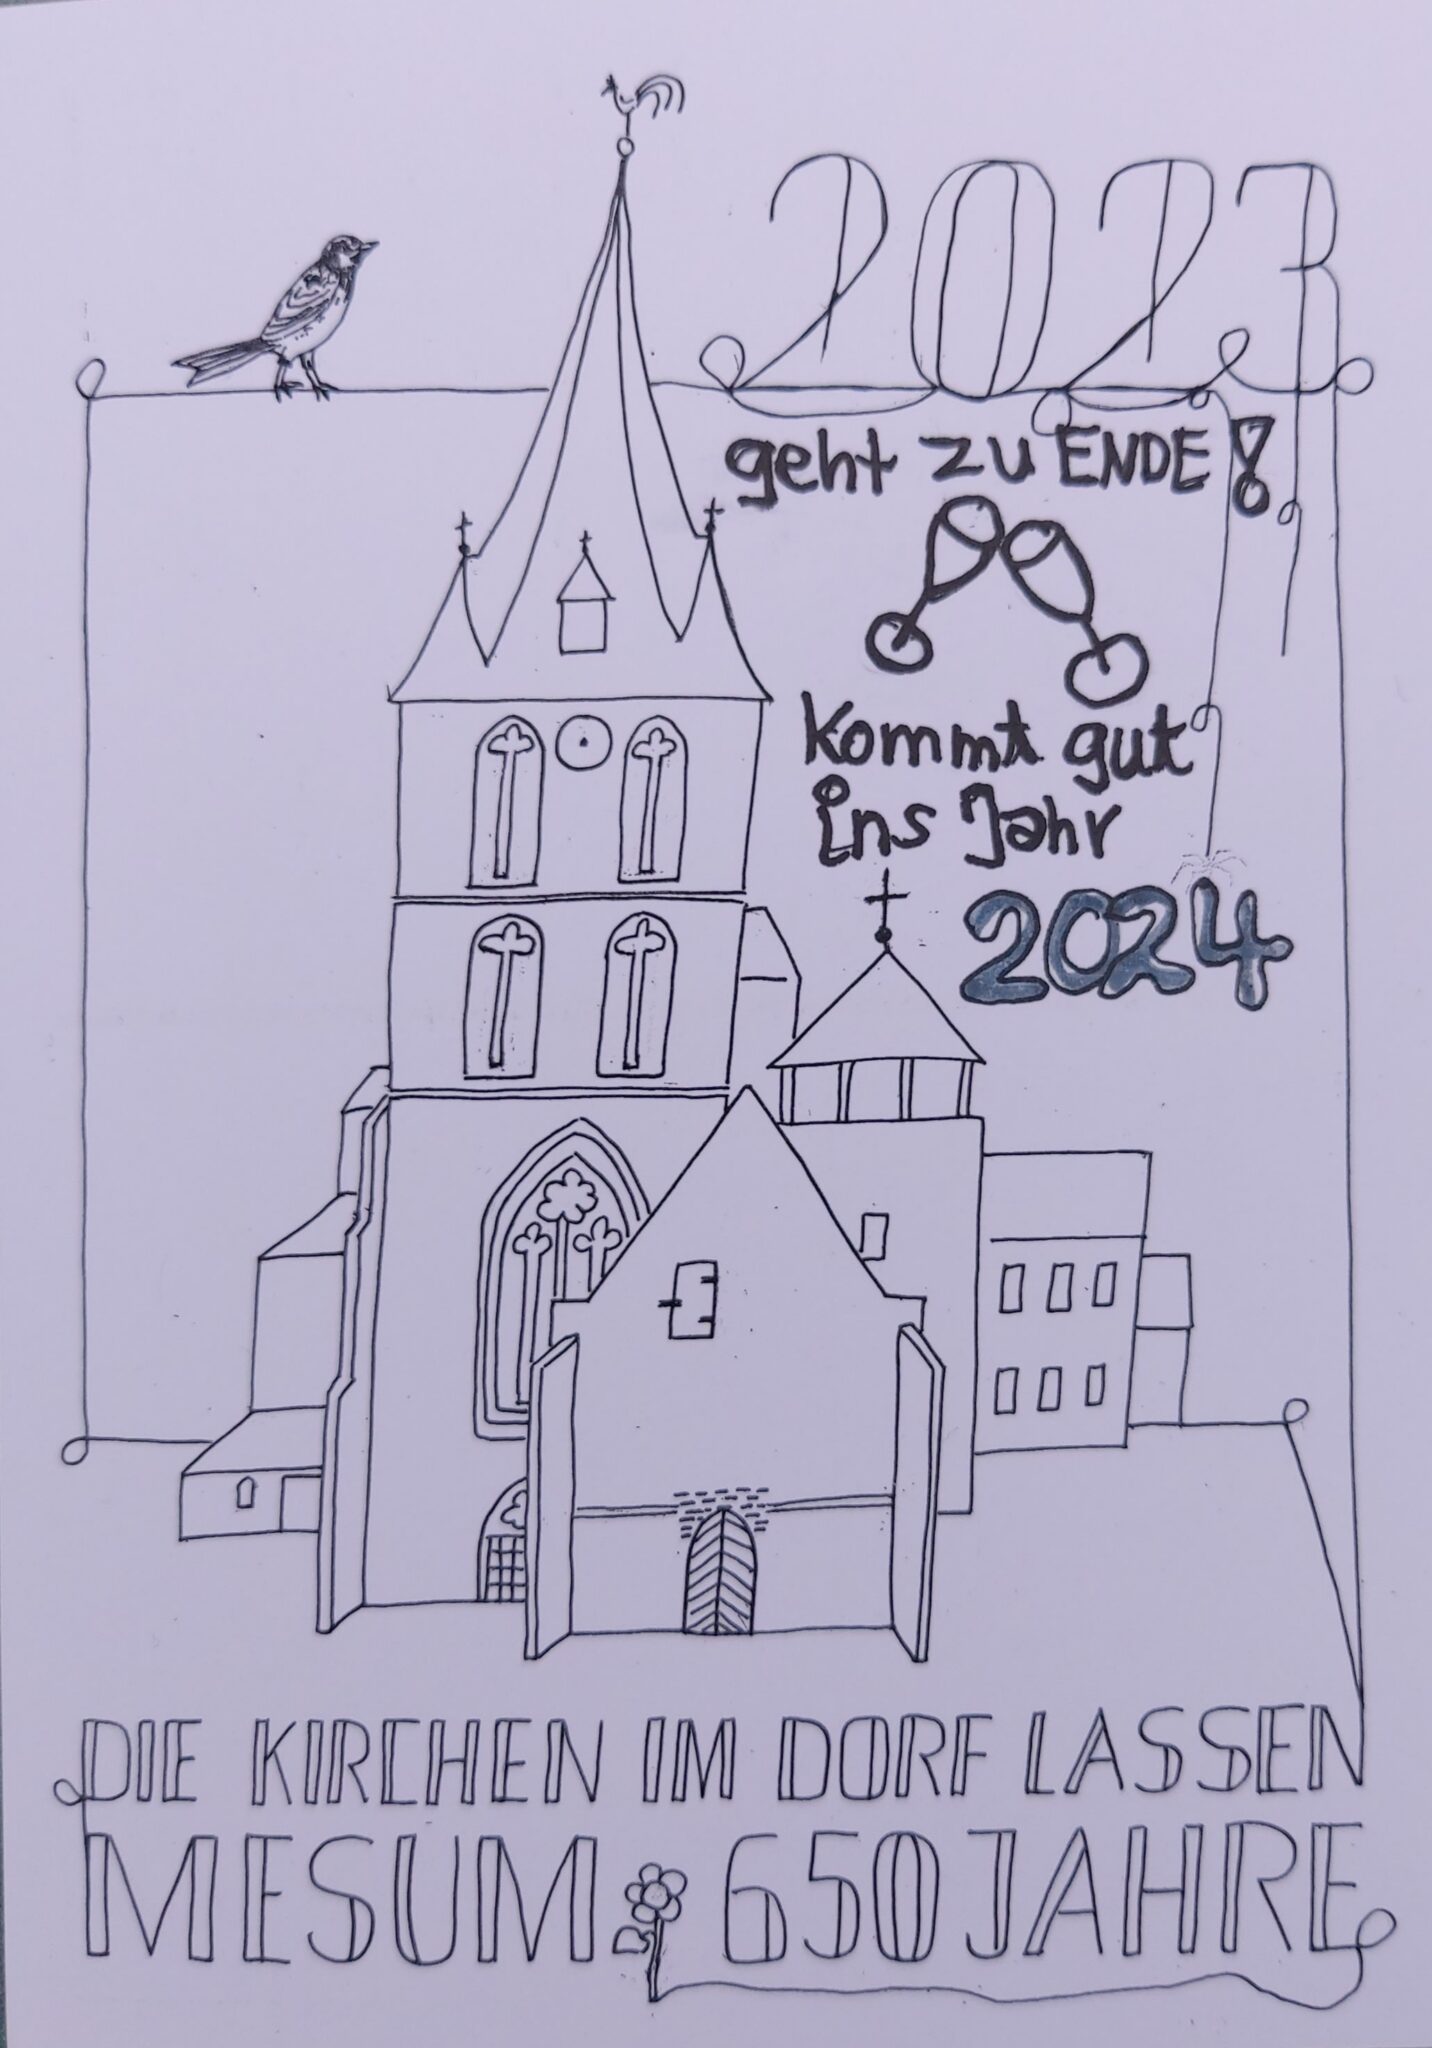 2023
geht zu ENDE!
kommt gut
ins Jahr
2024
DIE KIRCHEN IM DORF LASSEN
MESUM 650 JAHRE